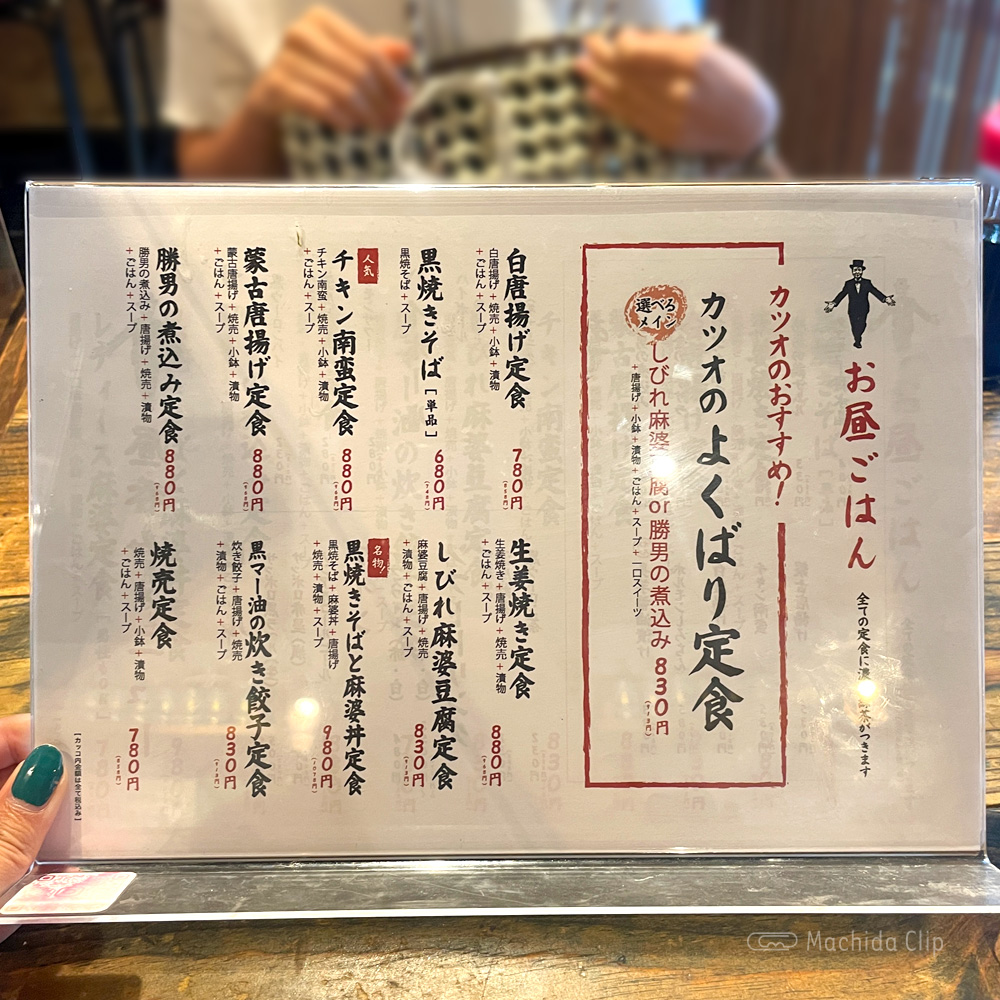 お昼ごはん
全ての定食に濃 茶がつきます
カツオのおすすめ!
カツオのよくばり定食
選べる
メイン
しびれ麻婆豆腐or勝男の煮込み 830円
(913円)
+唐揚げ+小鉢+漬物+ごはん+スープ+一口スイーツ
白唐揚げ定食 780円
(858円)
白唐揚げ+焼売+小鉢+漬物
+ごはん+スープ
黒焼きそば[単品] 680円
(748円)
黒焼きそば+スープ
人気
チキン南蛮定食 880円
(968円)
チキン南蛮+焼売+小鉢+漬物
+ごはん+スープ
蒙古唐揚げ定食 880円
(968円)
蒙古唐揚げ+焼売+小鉢+漬物
+ごはん+スープ
勝男の煮込み定食 880円
(968円)
勝男の煮込み+唐揚げ+焼売+漬物
+ごはん+スープ
生姜焼き定食 880円
(968円)
生姜焼き+唐揚げ+焼売+漬物
+ごはん+スープ
しびれ麻婆豆腐定食 830円
(913円)
麻婆豆腐+唐揚げ+焼売
+漬物+ごはん+スープ
名物!
黒焼きそばと麻婆丼定食 980円
(1078円)
黒焼そば+麻婆丼+唐揚げ
+焼売+漬物+スープ
黒マー油の炊き餃子定食 830円
(913円)
炊き餃子+唐揚げ+焼売
+漬物+ごはん+スープ
焼売定食 780円
(858円)
焼売+唐揚げ+小鉢+漬物
+ごはん+スープ
【カッコ内金額は全て税込み】
Machida Clip